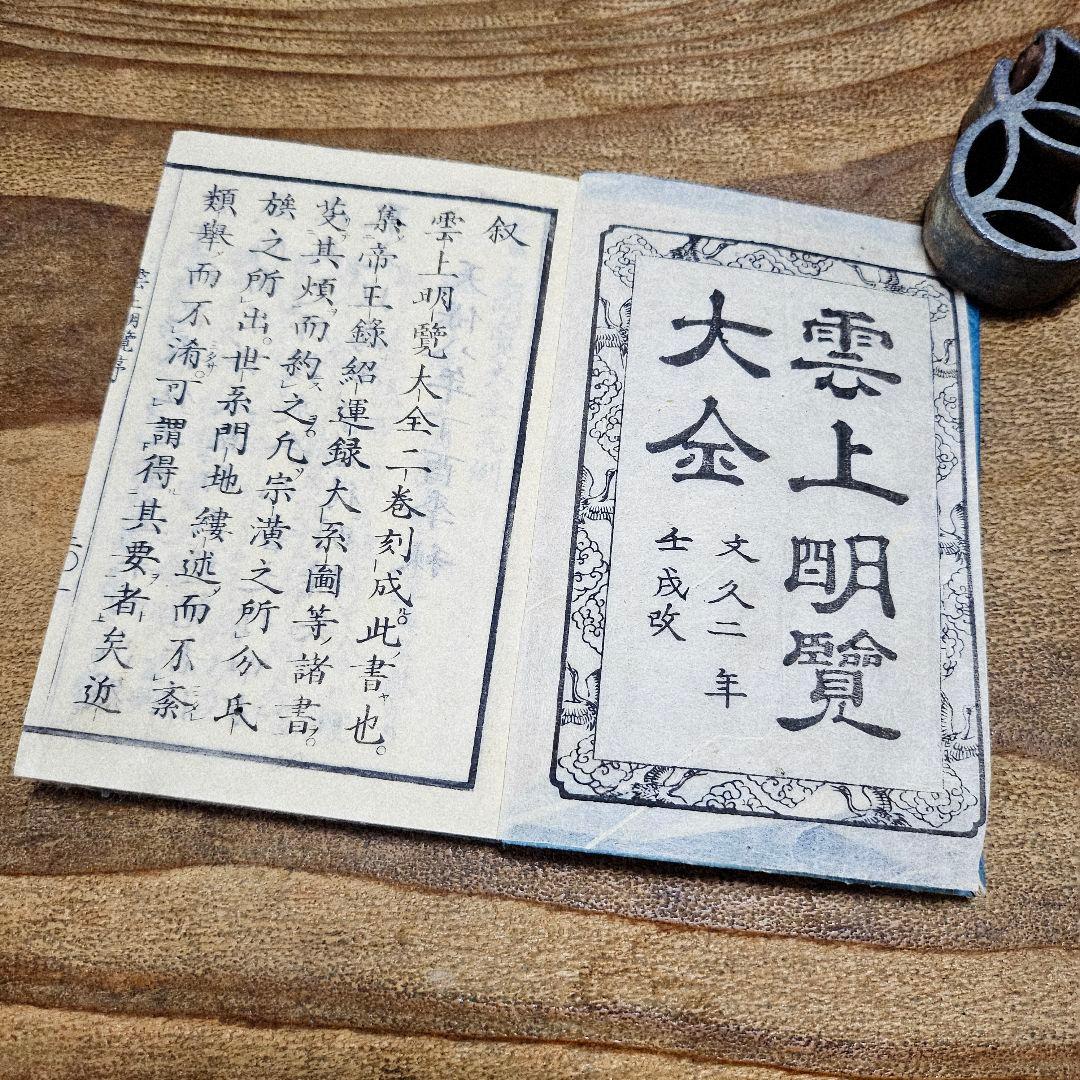 雲上明覽
大全
文久二年
壬戌改
叙
雲上明覽大全二卷刻成此書也。
集帝王錄紹運録大系圖等諸書。
芟其煩而約之凡宗潢之所分氏
族之所出。世系門地縷述而不紊
類舉而不淆。可謂得其要者矣近
雲上明覽序